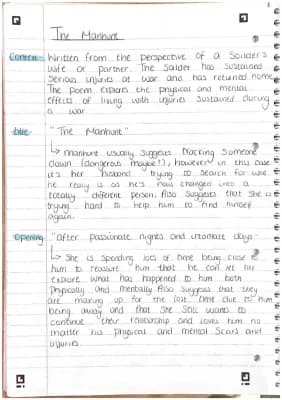 The Manhunt
Context Written from the perspective of a Soilder's
wife or partner. The Soilder has sustained
serious injuries at war and has returned home.
The poem explores the physical and mental
effects of living with injuries sustained during
a war.
title "The Manhunt"
↳ Manhunt usually suggests tracking someone
down (dangerous maybe?), however in this case
its her husband trying to search for who
he really is as he's now changed into a
totally different person. Also suggests that she is
trying hard to help him to find himself
again.
Opening "after passionate nights and intimate days"
↳ She is spending lots of time being close to
him to reassure him that he can let her
explore what has happened to him both
physically and mentally. Also suggests that they
are making up for the lost time due to him
being away and that she still wants to
continue their relationship and loves him no
matter his physical and mental scars and
injuries.